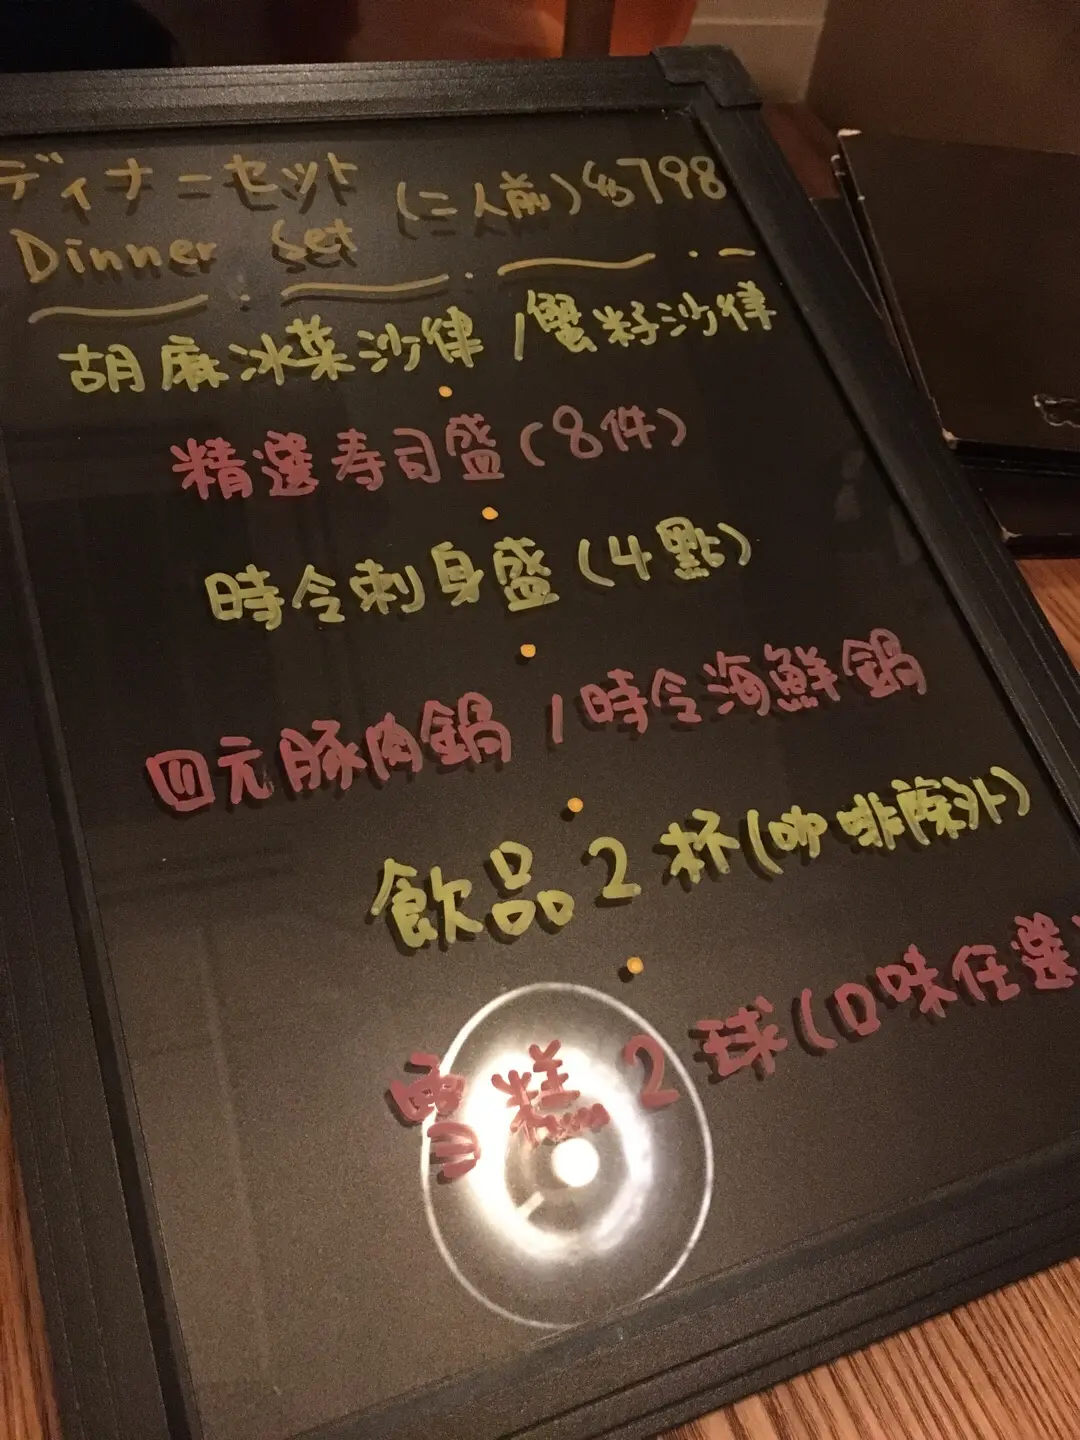 ディナーセット (二人前) $798
Dinner Set
胡麻冰菜沙律 / 蟹籽沙律
精選寿司盛 (8件)
時令刺身盛 (4點)
四元豚肉鍋 / 時令海鮮鍋
飲品2杯 (咖啡除外)
雪糕2球 (口味任選)